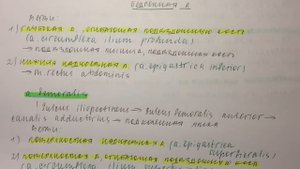 ветви:
1) глубокая а., огибающая подвздошную кость
(a. circumflexa ilium profunda)
→ подвздошная мышца, подвздошная кость
2) нижняя надчревная а. (a. epigastrica inferior)
→ m. rectus abdominis
a. femoralis
Sulcus iliopectineus → sulcus femoralis anterior →
canalis adductorius → подколенная ямка
ветви:
1) поверхностная надчревная а. (a. epigastrica
superficialis)
2) поверхностная а., огибающая подвздошную кость
(a. circumflexa ilium